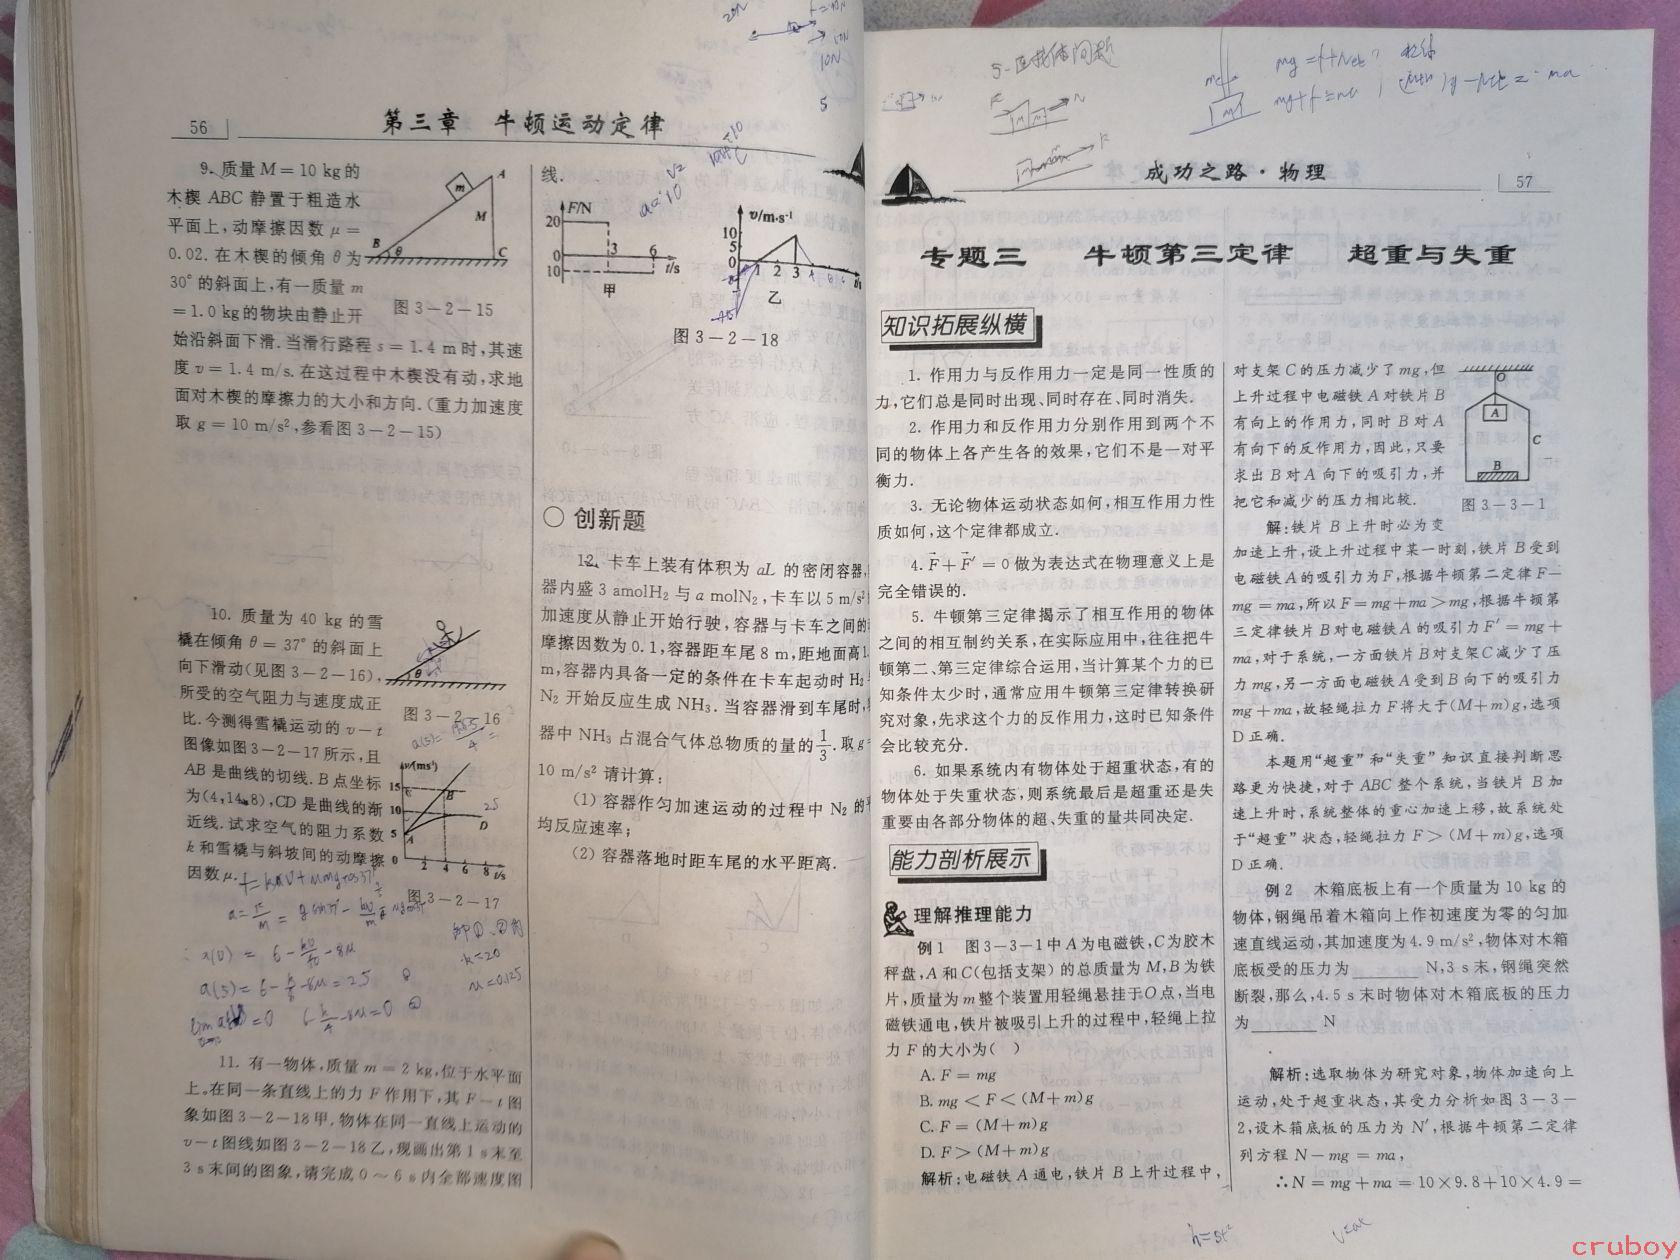 56
第三章 牛顿运动定律
9. 质量 M=10 kg的
木楔 ABC 静置于粗造水
平面上,动摩擦因数 μ=
0.02. 在木楔的倾角 θ 为
30° 的斜面上,有一质量 m
=1.0 kg的物块由静止开
始沿斜面下滑.当滑行路程 s=1.4 m时,其速
度 v=1.4 m/s.在这过程中木楔没有动,求地
面对木楔的摩擦力的大小和方向.(重力加速度
取 g=10 m/s²,参看图3-2-15)
m
A
M
B
θ
C
图3-2-15
10. 质量为 40 kg 的雪
橇在倾角 θ=37° 的斜面上
向下滑动(见图3-2-16),
所受的空气阻力与速度成正
比.今测得雪橇运动的 v-t
图像如图3-2-17所示,且
AB 是曲线的切线. B 点坐标
为(4,14.8),CD是曲线的渐
近线.试求空气的阻力系数
k 和雪橇与斜坡间的动摩擦
因数 μ.
θ
图3-2-16
v/(ms⁻¹)
15
C
B
10
D
5
A
0
2 4 6 8 t/s
图3-2-17
k=20
μ=0.125
11. 有一物体,质量 m=2 kg,位于水平面
上.在同一条直线上的力 F 作用下,其 F-t图
象如图3-2-18甲,物体在同一直线上运动的
v-t图线如图3-2-18乙,现画出第1 s末至
3 s末间的图象,请完成0~6 s内全部速度图
线.
F/N
20
0
10
3
6
t/s
甲
v/m·s⁻¹
10
5
0
1 2 3
t/s
乙
图3-2-18
○ 创新题
12. 卡车上装有体积为 aL 的密闭容器,
器内盛 3 amolH₂ 与 a molN₂,卡车以 5 m/s²
加速度从静止开始行驶,容器与卡车之间的
摩擦因数为0.1,容器距车尾8 m,距地面高1.
m,容器内具备一定的条件在卡车起动时 H₂
N₂ 开始反应生成 NH₃. 当容器滑到车尾时,
器中 NH₃ 占混合气体总物质的量的1/3.取 g
10 m/s² 请计算:
(1) 容器作匀加速运动的过程中 N₂ 的平
均反应速率;
(2) 容器落地时距车尾的水平距离.
成功之路·物理
57
专题三 牛顿第三定律 超重与失重
知识拓展纵横
1. 作用力与反作用力一定是同一性质的
力,它们总是同时出现、同时存在、同时消失.
2. 作用力和反作用力分别作用到两个不
同的物体上各产生各的效果,它们不是一对平
衡力.
3. 无论物体运动状态如何,相互作用力性
质如何,这个定律都成立.
4. F⃗+F⃗′=0做为表达式在物理意义上是
完全错误的.
5. 牛顿第三定律揭示了相互作用的物体
之间的相互制约关系,在实际应用中,往往把牛
顿第二、第三定律综合运用,当计算某个力的已
知条件太少时,通常应用牛顿第三定律转换研
究对象,先求这个力的反作用力,这时已知条件
会比较充分.
6. 如果系统内有物体处于超重状态,有的
物体处于失重状态,则系统最后是超重还是失
重要由各部分物体的超、失重的量共同决定.
能力剖析展示
理解推理能力
例1 图3-3-1中 A 为电磁铁,C 为胶木
秤盘,A 和 C(包括支架)的总质量为 M,B 为铁
片,质量为 m 整个装置用轻绳悬挂于 O 点,当电
磁铁通电,铁片被吸引上升的过程中,轻绳上拉
力 F 的大小为( )
A. F=mg
B. mg<F<(M+m)g
C. F=(M+m)g
D. F>(M+m)g
解析:电磁铁 A 通电,铁片 B 上升过程中,
对支架 C 的压力减少了 mg,但
上升过程中电磁铁 A 对铁片 B
有向上的作用力,同时 B 对 A
有向下的反作用力,因此,只要
求出 B 对 A 向下的吸引力,并
把它和减少的压力相比较.
O
A
C
B
图3-3-1
解:铁片 B 上升时必为变
加速上升,设上升过程中某一时刻,铁片 B 受到
电磁铁 A 的吸引力为 F,根据牛顿第二定律 F-
mg=ma,所以 F=mg+ma>mg,根据牛顿第
三定律铁片 B 对电磁铁 A 的吸引力 F′=mg+
ma,对于系统,一方面铁片 B 对支架 C 减少了压
力 mg,另一方面电磁铁 A 受到 B 向下的吸引力
mg+ma,故轻绳拉力 F 将大于(M+m)g,选项
D 正确.
本题用“超重”和“失重”知识直接判断思
路更为快捷,对于 ABC 整个系统,当铁片 B 加
速上升时,系统整体的重心加速上移,故系统处
于“超重”状态,轻绳拉力 F>(M+m)g,选项
D 正确.
例2 木箱底板上有一个质量为 10 kg 的
物体,钢绳吊着木箱向上作初速度为零的匀加
速直线运动,其加速度为4.9 m/s²,物体对木箱
底板受的压力为______N,3 s末,钢绳突然
断裂,那么,4.5 s末时物体对木箱底板的压力
为______N
解析:选取物体为研究对象,物体加速向上
运动,处于超重状态,其受力分析如图3-3-
2,设木箱底板的压力为 N′,根据牛顿第二定律
列方程 N-mg=ma,
∴N=mg+ma=10×9.8+10×4.9=
cruboy